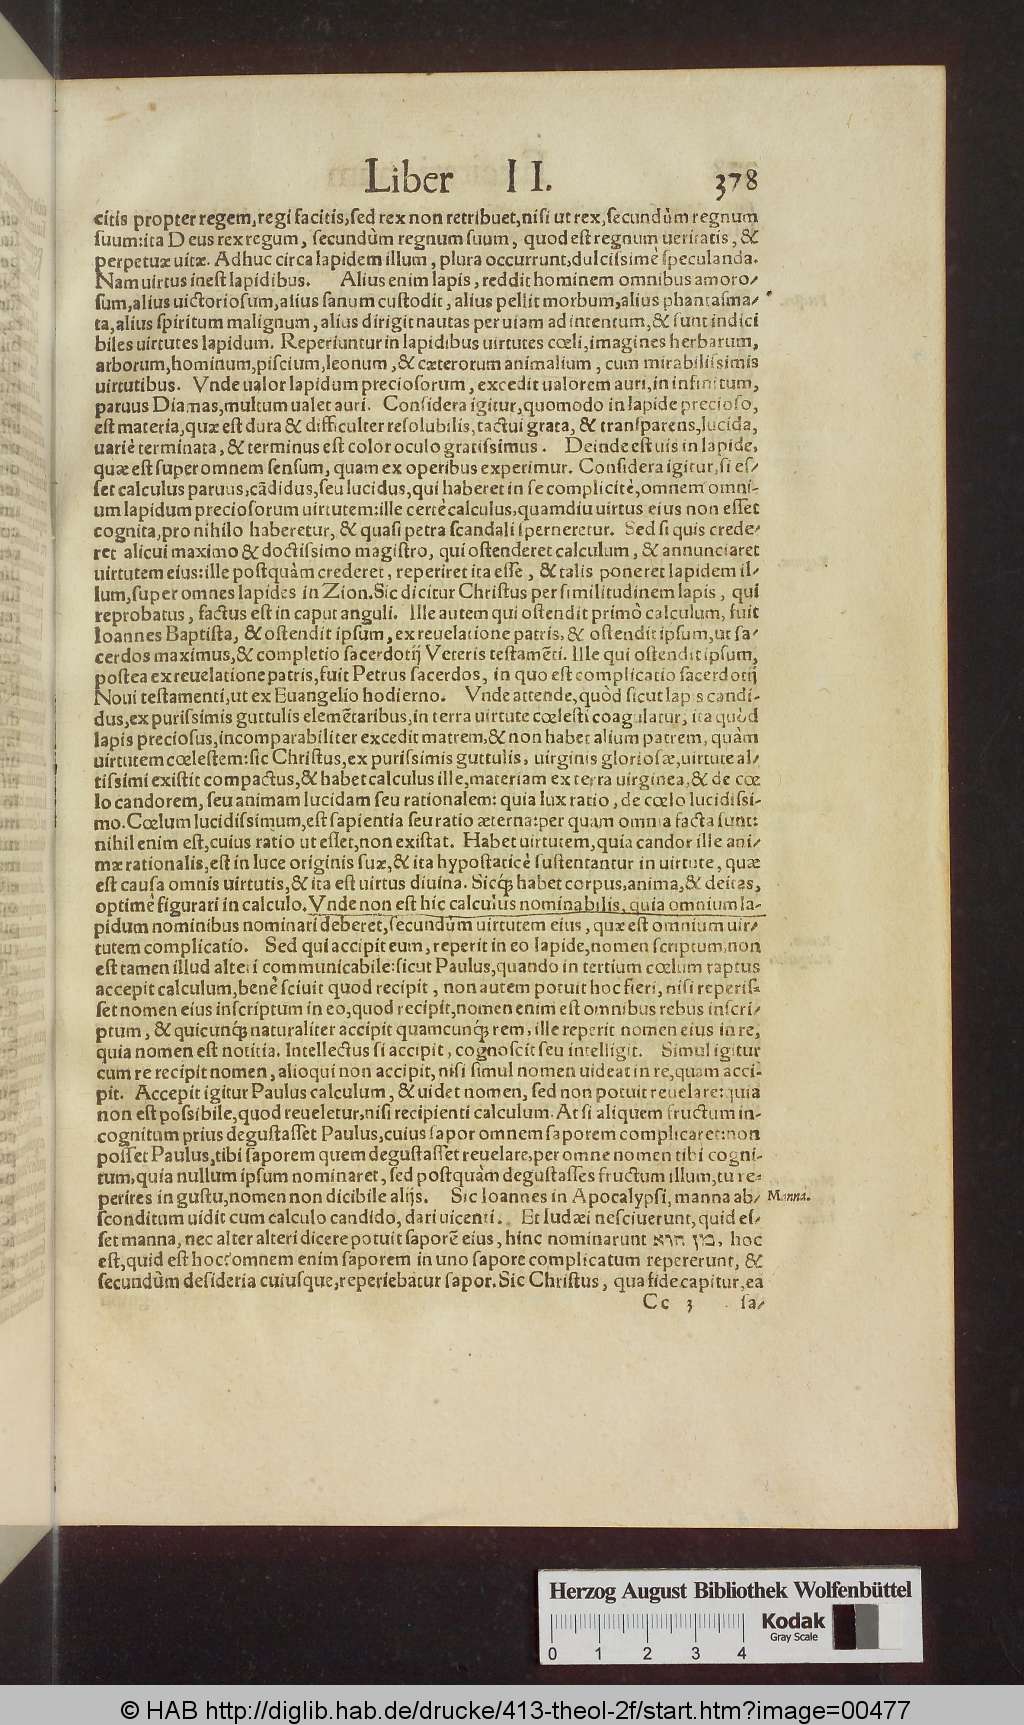 Liber II. 378
citis propter regem, regi facitis, sed rex non retribuet, nisi ut rex, secundùm regnum
suum: ita Deus rex regum, secundùm regnum suum, quod est regnum ueritatis, &
perpetuæ uitæ. Adhuc circa lapidem illum, plura occurrunt, dulcissimè speculanda.
Nam uirtus inest lapidibus. Alius enim lapis, reddit hominem omnibus amoro⸗
sum, alius uictoriosum, alius sanum custodit, alius pellit morbum, alius phantasma⸗
ta, alius spiritum malignum, alius dirigit nautas per uiam ad intentum, & sunt indici
biles uirtutes lapidum. Reperiuntur in lapidibus uirtutes cœli, imagines herbarum,
arborum, hominum, piscium, leonum, & cæterorum animalium, cum mirabilissimis
uirtutibus. Vnde ualor lapidum preciosorum, excedit ualorem auri, in infinitum,
paruus Diamas, multum ualet auri. Considera igitur, quomodo in lapide precioso,
est materia, quæ est dura & difficulter resolubilis, tactui grata, & transparens, lucida,
uariè terminata, & terminus est color oculo gratissimus. Deinde est uis in lapide,
quæ est super omnem sensum, quam ex operibus experimur. Considera igitur, si es⸗
set calculus paruus, cãdidus, seu lucidus, qui haberet in se complicitè, omnem omni-
um lapidum preciosorum uirtutem: ille certè calculus, quamdiu uirtus eius non esset
cognita, pro nihilo haberetur, & quasi petra scandali sperneretur. Sed si quis crede⸗
ret alicui maximo & doctissimo magistro, qui ostenderet calculum, & annunciaret
uirtutem eius: ille postquàm crederet, reperiret ita esse, & talis poneret lapidem il⸗
lum, super omnes lapides in Zion. Sic dicitur Christus per similitudinem lapis, qui
reprobatus, factus est in caput anguli. Ille autem qui ostendit primò calculum, fuit
Ioannes Baptista, & ostendit ipsum, ex reuelatione patris, & ostendit ipsum, ut sa⸗
cerdos maximus, & completio sacerdotij Veteris testamẽti. Ille qui ostendit ipsum,
postea ex reuelatione patris, fuit Petrus sacerdos, in quo est complicatio sacerdotij
Noui testamenti, ut ex Euangelio hodierno. Vnde attende, quòd sicut lapis candi-
dus, ex purissimis guttulis elemẽtaribus, in terra uirtute cœlesti coagulatur, ita quòd
lapis preciosus, incomparabiliter excedit matrem, & non habet alium patrem, quàm
uirtutem cœlestem: sic Christus, ex purissimis guttulis, uirginis gloriosæ, uirtute al⸗
tissimi existit compactus, & habet calculus ille, materiam ex terra uirginea, & de cœ
lo candorem, seu animam lucidam seu rationalem: quia lux ratio, de cœlo lucidissi-
mo. Cœlum lucidissimum, est sapientia seu ratio æterna: per quam omnia facta sunt:
nihil enim est, cuius ratio ut esset, non existat. Habet uirtutem, quia candor ille ani⸗
mæ rationalis, est in luce originis suæ, & ita hypostaticè sustentantur in uirtute, quæ
est causa omnis uirtutis, & ita est uirtus diuina. Sicq́; habet corpus, anima, & deitas,
optimè figurari in calculo. Vnde non est hic calculus nominabilis, quia omnium la-
pidum nominibus nominari deberet, secundùm uirtutem eius, quæ est omnium uir⸗
tutem complicatio. Sed qui accipit eum, reperit in eo lapide, nomen scriptum, non
est tamen illud alteri communicabile: sicut Paulus, quando in tertium cœlum raptus
accepit calculum, benè sciuit quod recipit, non autem potuit hoc fieri, nisi reperis⸗
set nomen eius inscriptum in eo, quod recipit, nomen enim est omnibus rebus inscri⸗
ptum, & quicunq́; naturaliter accipit quamcunq́; rem, ille reperit nomen eius in re,
quia nomen est notitia. Intellectus si accipit, cognoscit seu intelligit. Simul igitur
cum re recipit nomen, alioqui non accipit, nisi simul nomen uideat in re, quam acci-
pit. Accepit igitur Paulus calculum, & uidet nomen, sed non potuit reuelare: quia
non est possibile, quod reueletur, nisi recipienti calculum. At si aliquem fructum in-
cognitum prius degustasset Paulus, cuius sapor omnem saporem complicaret: non
posset Paulus, tibi saporem quem degustasset reuelare, per omne nomen tibi cogni-
tum, quia nullum ipsum nominaret, sed postquàm degustasses fructum illum, tu re⸗
perires in gustu, nomen non dicibile alijs. Sic Ioannes in Apocalypsi, manna ab⸗
Manna.
sconditum uidit cum calculo candido, dari uicenti. Et Iudæi nesciuerunt, quid es⸗
set manna, nec alter alteri dicere potuit saporẽ eius, hinc nominarunt מן הוא, hoc
est, quid est hoc: omnem enim saporem in uno sapore complicatum repererunt, &
secundùm desideria cuiusque, reperiebatur sapor. Sic Christus, qua fide capitur, ea
Cc 3 sa⸗
Herzog August Bibliothek Wolfenbüttel
0 1 2 3 4
Kodak
Gray Scale
© HAB http://diglib.hab.de/drucke/413-theol-2f/start.htm?image=00477